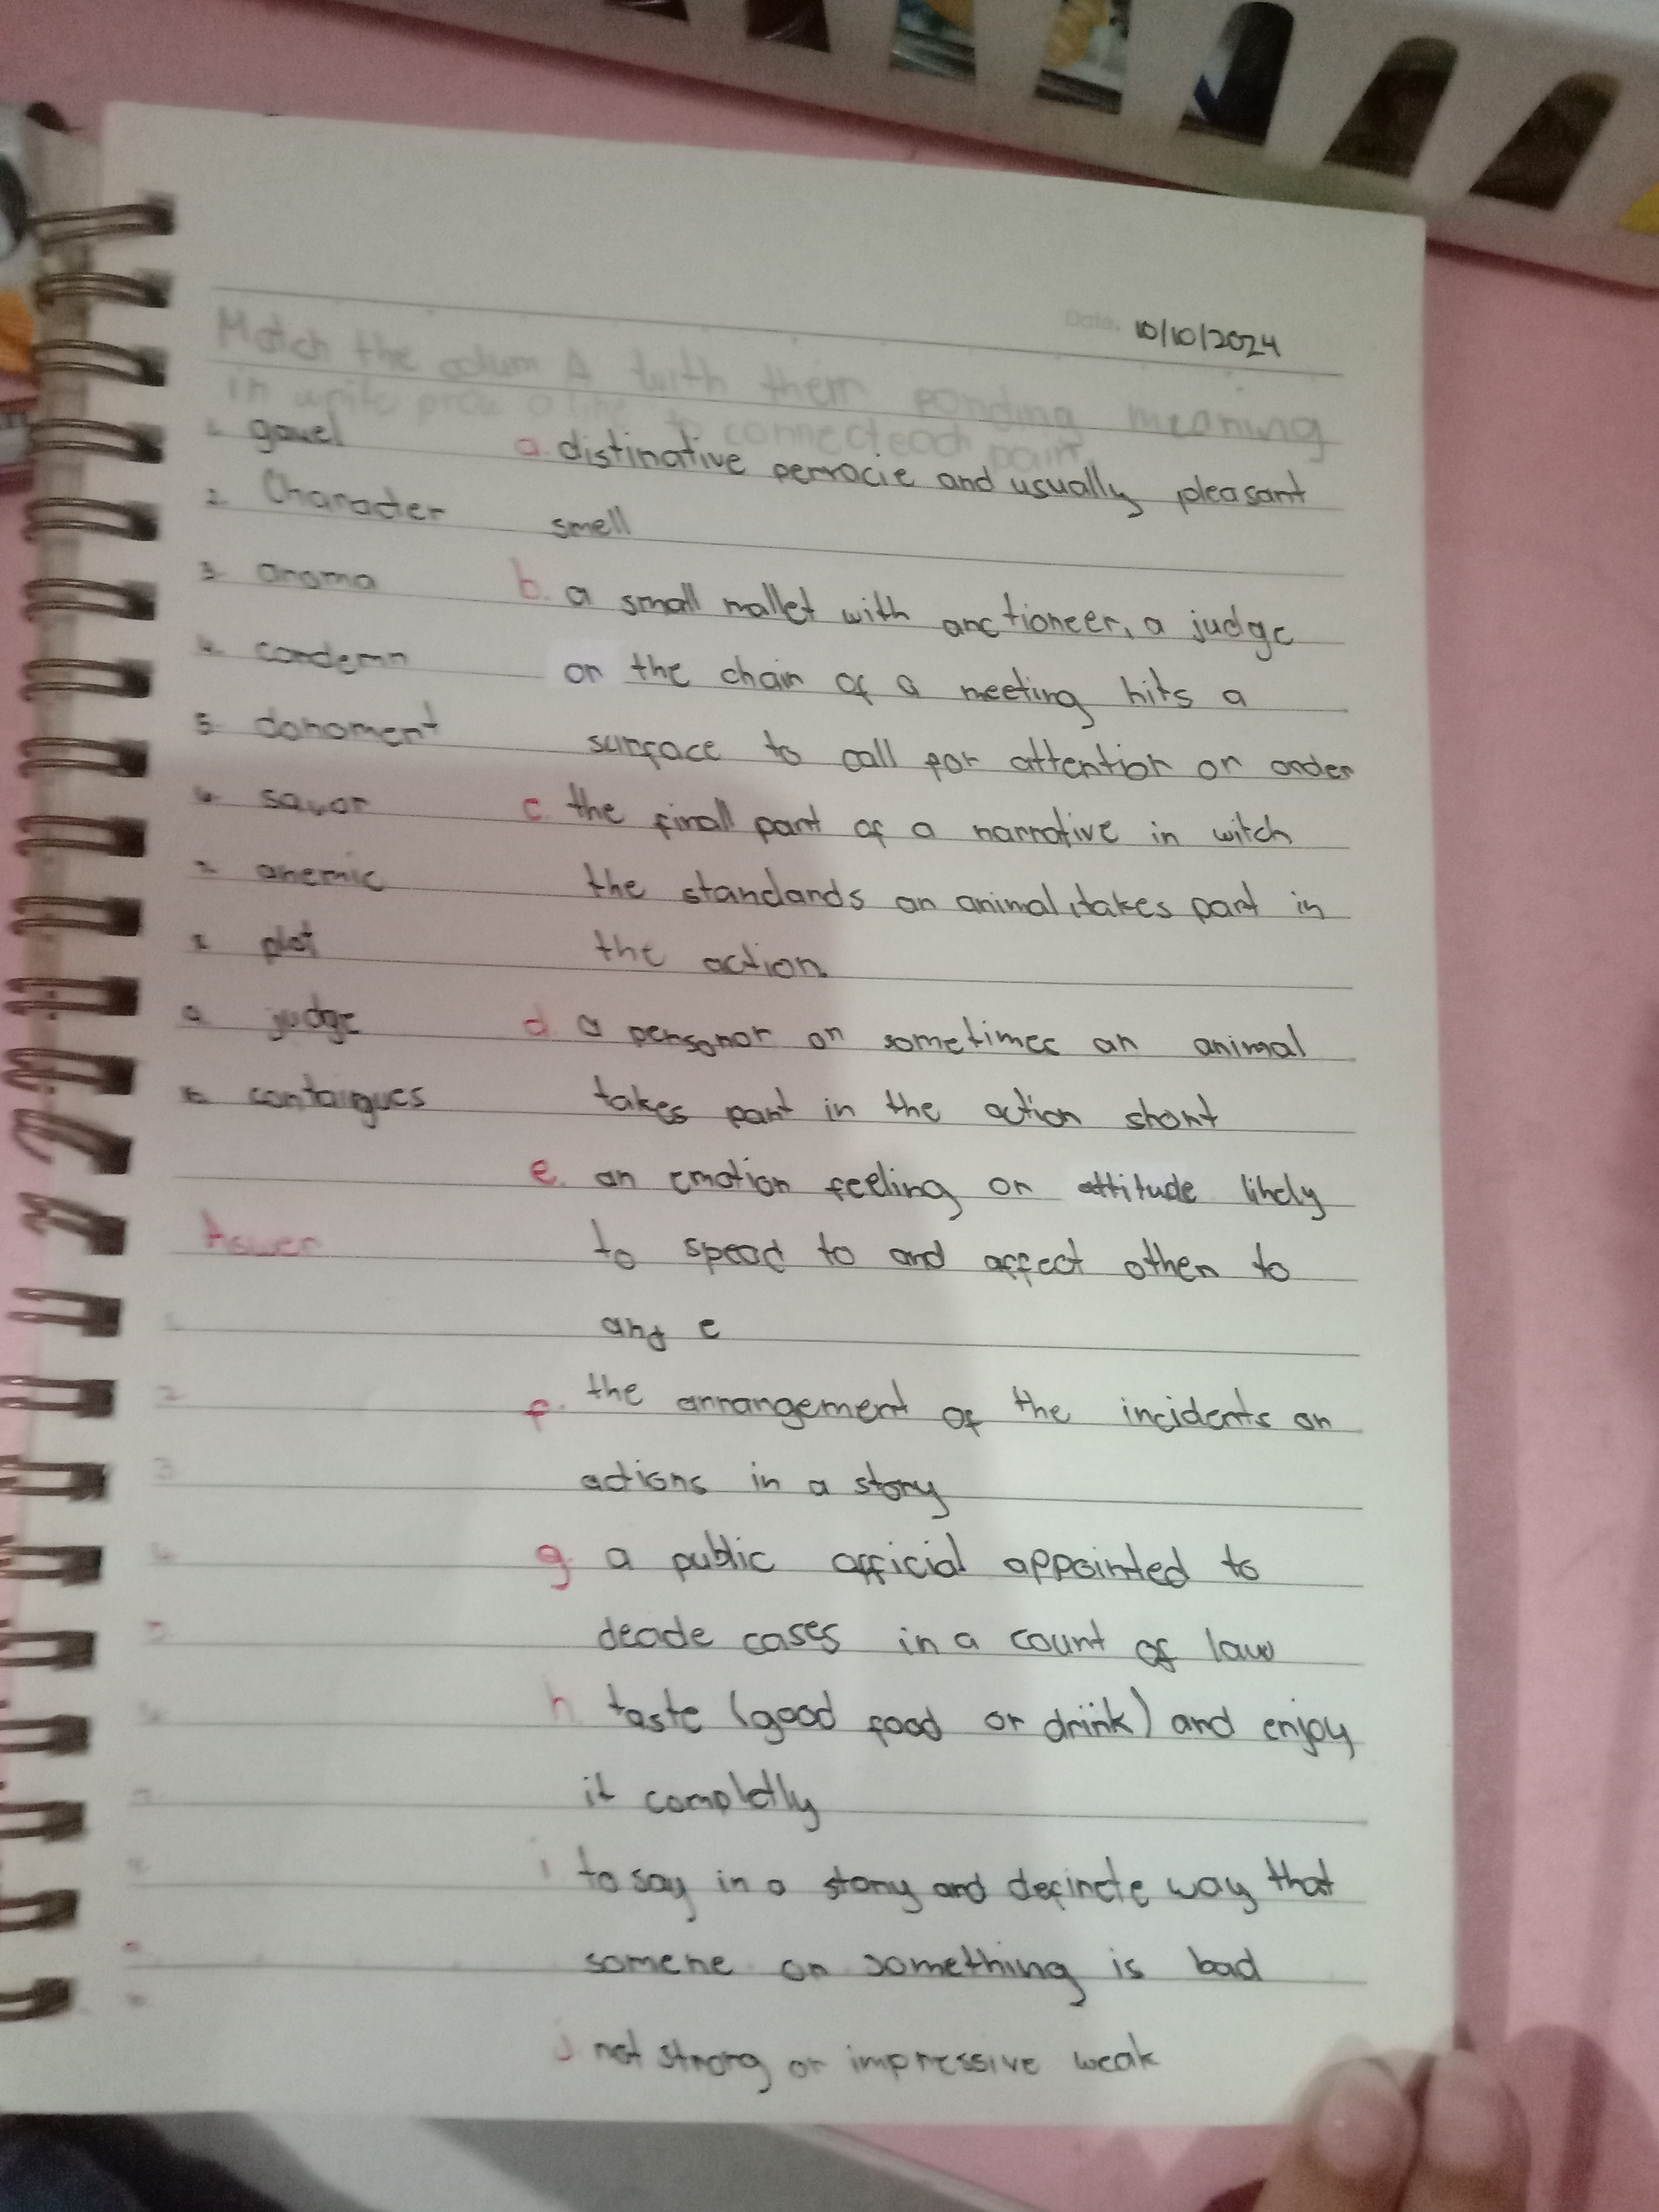 Date. 10/10/2024
Match the colum A with them ponding meaning
in write a line to connect each pair.
1. gavel
2. Character
3. aroma
4. condemn
5. donoment
6. savor
7. anemic
8. plot
9. judge
10. contaigues
Aswer
1.
2
3
4
5
6
7
8
9
10
a. distinative perracie and usually pleasant
smell
b. a small mallet with anctioneer, a judge
or the chair of a meeting hits a
surface to call for attention or order
c. the finall part of a narrative in witch
the standards or animal, takes part in
the action.
d. a personor or sometimes an animal
takes part in the action short
e. an emotion feeling or attitude likely
to spead to and affect other to
and e
f. the arrangement of the incidents or
actions in a story
g. a public official appointed to
decide cases in a court of law
h. taste (good food or drink) and enjoy
it completly
i to say in a story and definete way that
somene or something is bad
j not strong or impressive weak